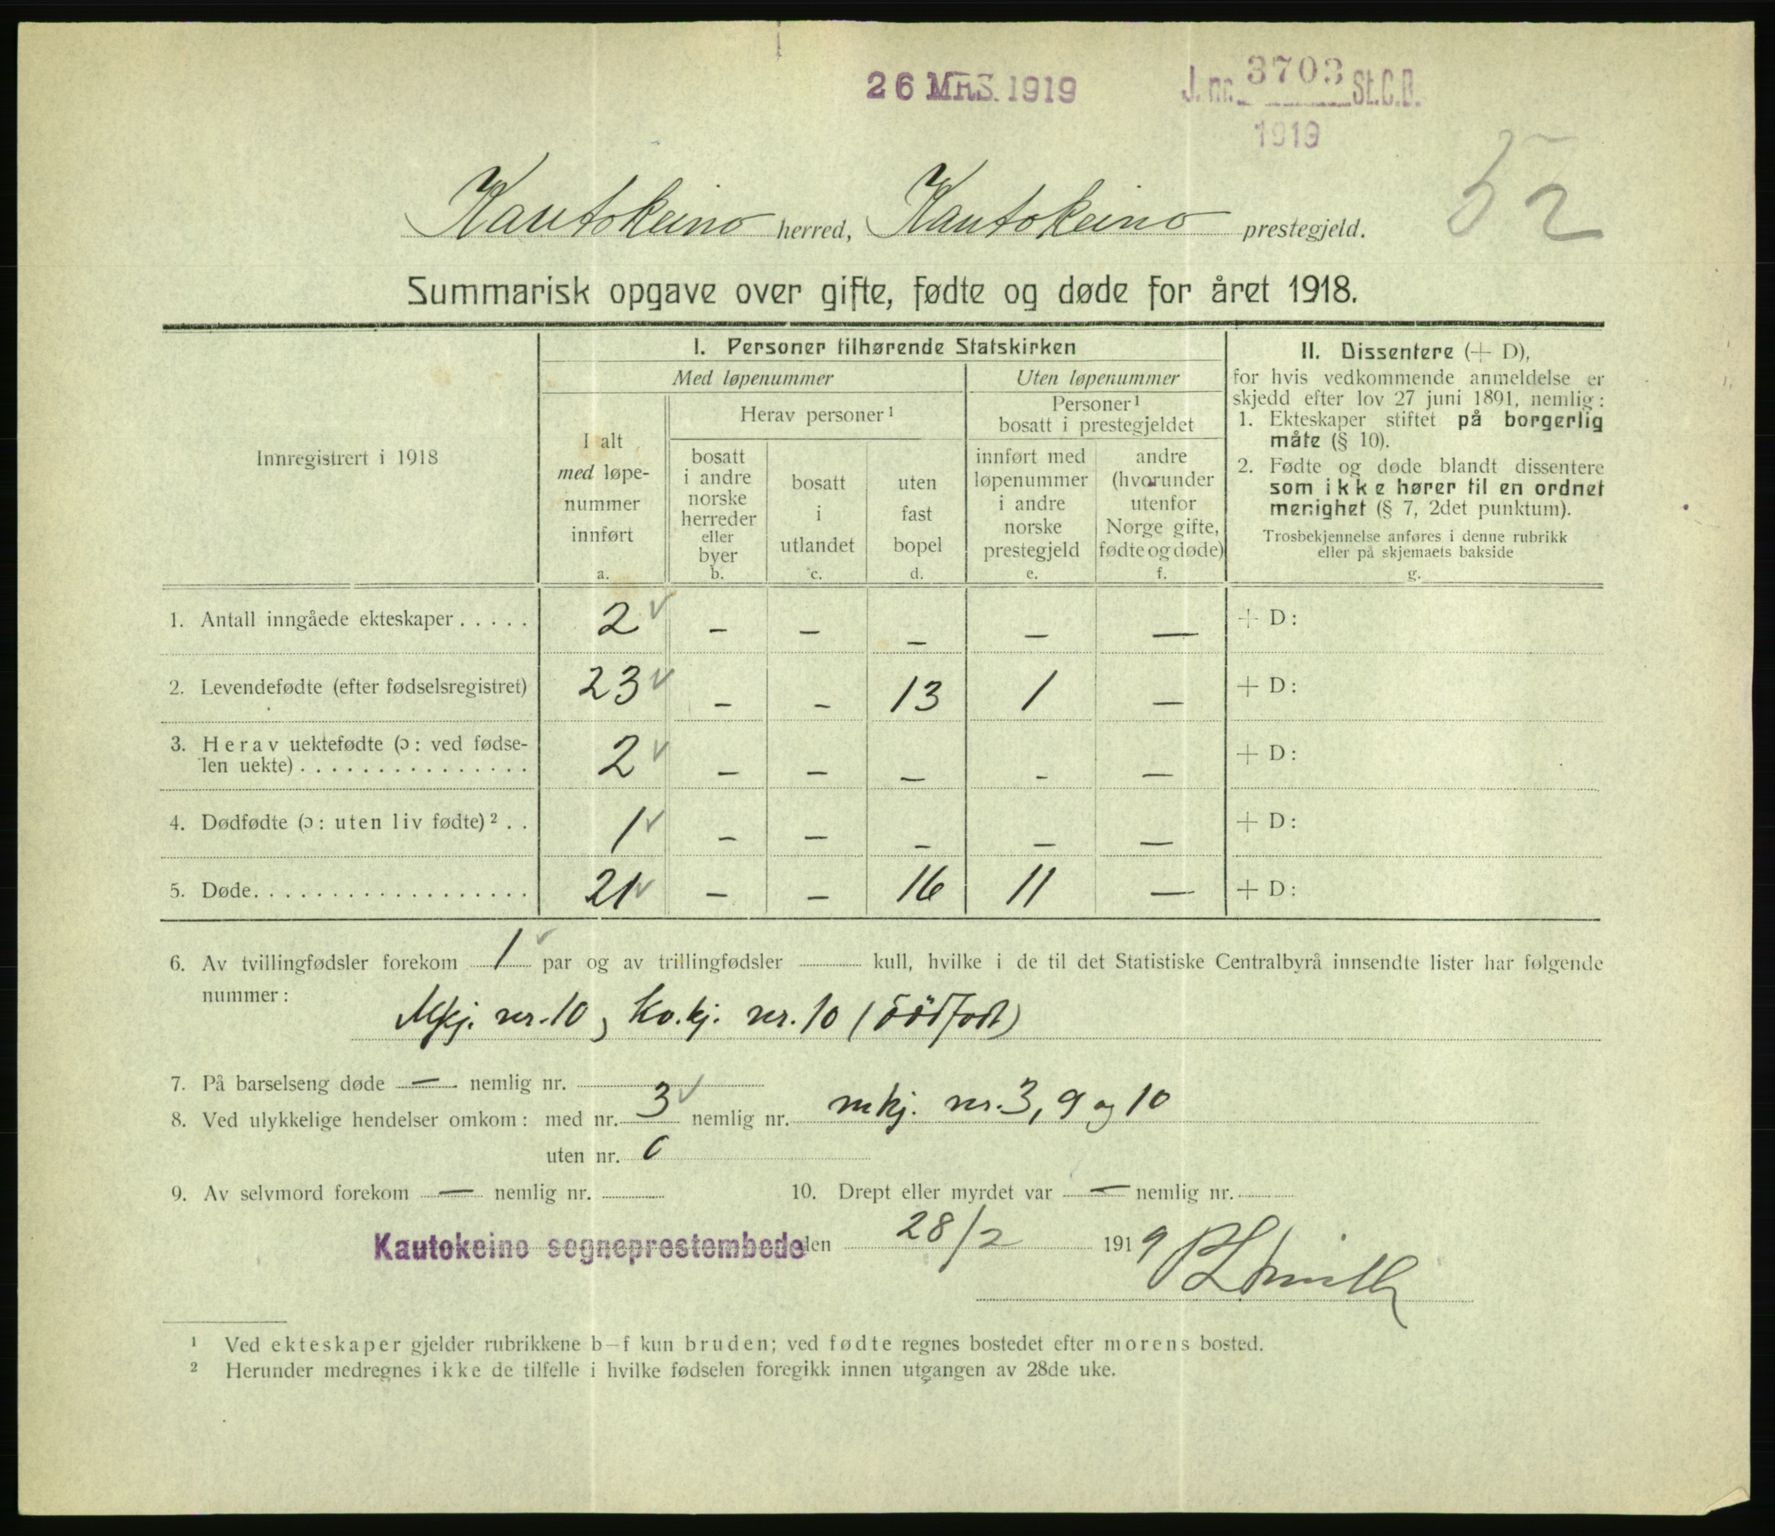 26 MRS. 1919
J. nr. 3703 St.C.B.
1919
52
Kautokeino herred, Kautokeino prestegjeld.
Summarisk opgave over gifte, fødte og døde for året 1918.
Innregistrert i 1918
I. Personer tilhørende Statskirken
Med løpenummer
Uten løpenummer
I alt
med løpe-
nummer
innført
a.
Herav personer ¹
bosatt
i andre
norske
herreder
eller
byer
b.
bosatt
i
utlandet
c.
uten
fast
bopel
d.
Personer ¹
bosatt i prestegjeldet
innført med
løpenummer
i andre
norske
prestegjeld
e.
andre
(hvorunder
utenfor
Norge gifte,
fødte og døde)
f.
II. Dissentere (+ D),
for hvis vedkommende anmeldelse er
skjedd efter lov 27 juni 1891, nemlig:
1. Ekteskaper stiftet på borgerlig
måte (§ 10).
2. Fødte og døde blandt dissentere
som ikke hører til en ordnet
menighet (§ 7, 2det punktum).
Trosbekjennelse anføres i denne rubrikk
eller på skjemaets bakside
g.
1. Antall inngåede ekteskaper . . . . . 2 – – – – – + D:
2. Levendefødte (efter fødselsregistret) 23 – – 13 1 – + D:
3. Herav uektefødte (ɔ: ved fødse-
len uekte) . . . . . . . . . . . . . . . 2 – – – – – + D:
4. Dødfødte (ɔ: uten liv fødte) ² . . 1 – – – – – + D:
5. Døde. . . . . . . . . . . . . . . . . . 21 – – 16 11 – + D:
6. Av tvillingfødsler forekom 1 par og av trillingfødsler ........ kull, hvilke i de til det Statistiske Centralbyrå innsendte lister har følgende
nummer:
Mkj. nr. 10, Kv.kj. nr. 10 (dødfødt)
7. På barselseng døde – nemlig nr.
8. Ved ulykkelige hendelser omkom: med nr. 3 nemlig nr. mkj. nr. 3, 9 og 10
uten nr. 0
9. Av selvmord forekom – nemlig nr. 10. Drept eller myrdet var – nemlig nr.
Kautokeino sogneprestembede den 28/2 1919
¹ Ved ekteskaper gjelder rubrikkene b–f kun bruden; ved fødte regnes bostedet efter morens bosted.
² Herunder medregnes ikke de tilfelle i hvilke fødselen foregikk innen utgangen av 28de uke.